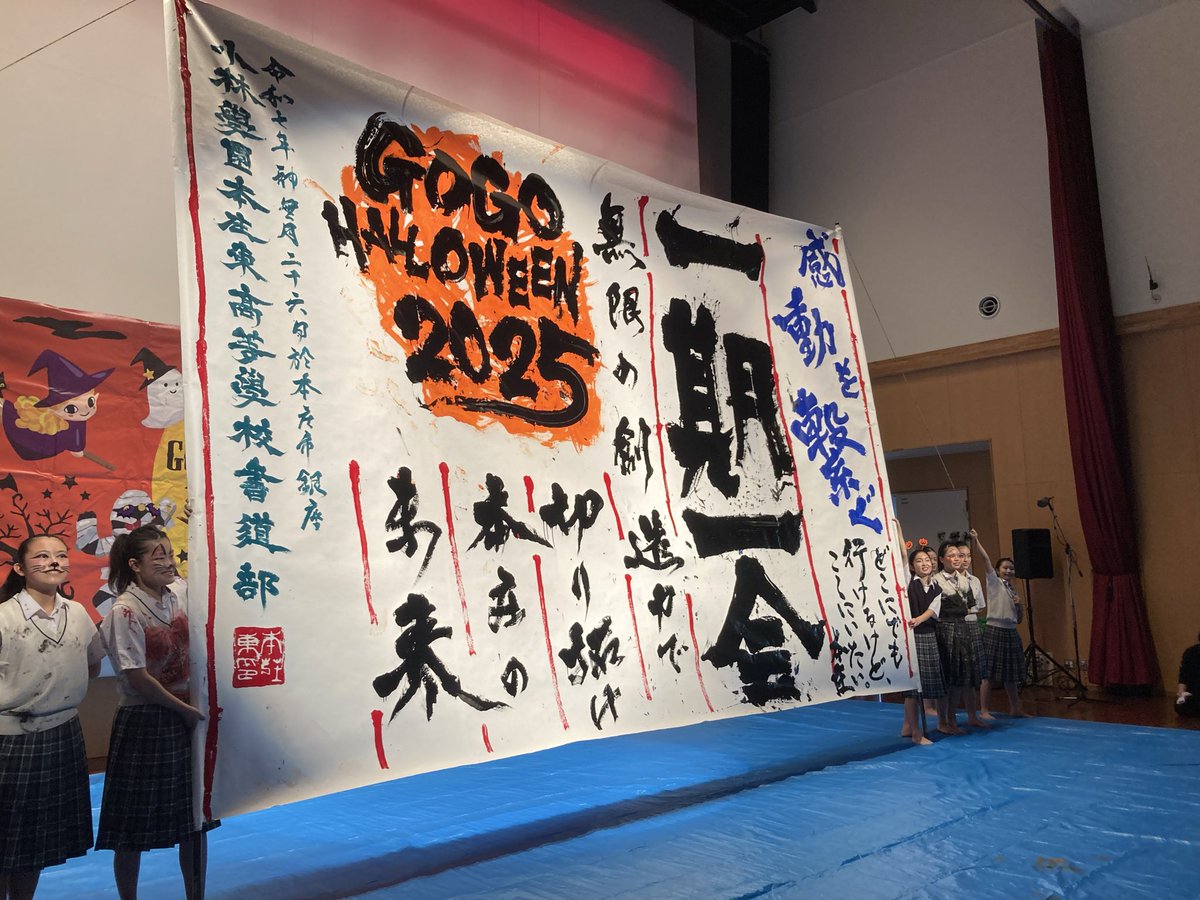 感動を繋ぐ
どこにでも
行けるけど、
ここにいたい
一期一会
無限の創造力で
切り拓け
本庄の
未来
GOGO
HALLOWEEN
2025
令和七年神無月二十六日於本庄市銀座
小林學園本庄東高等學校書道部